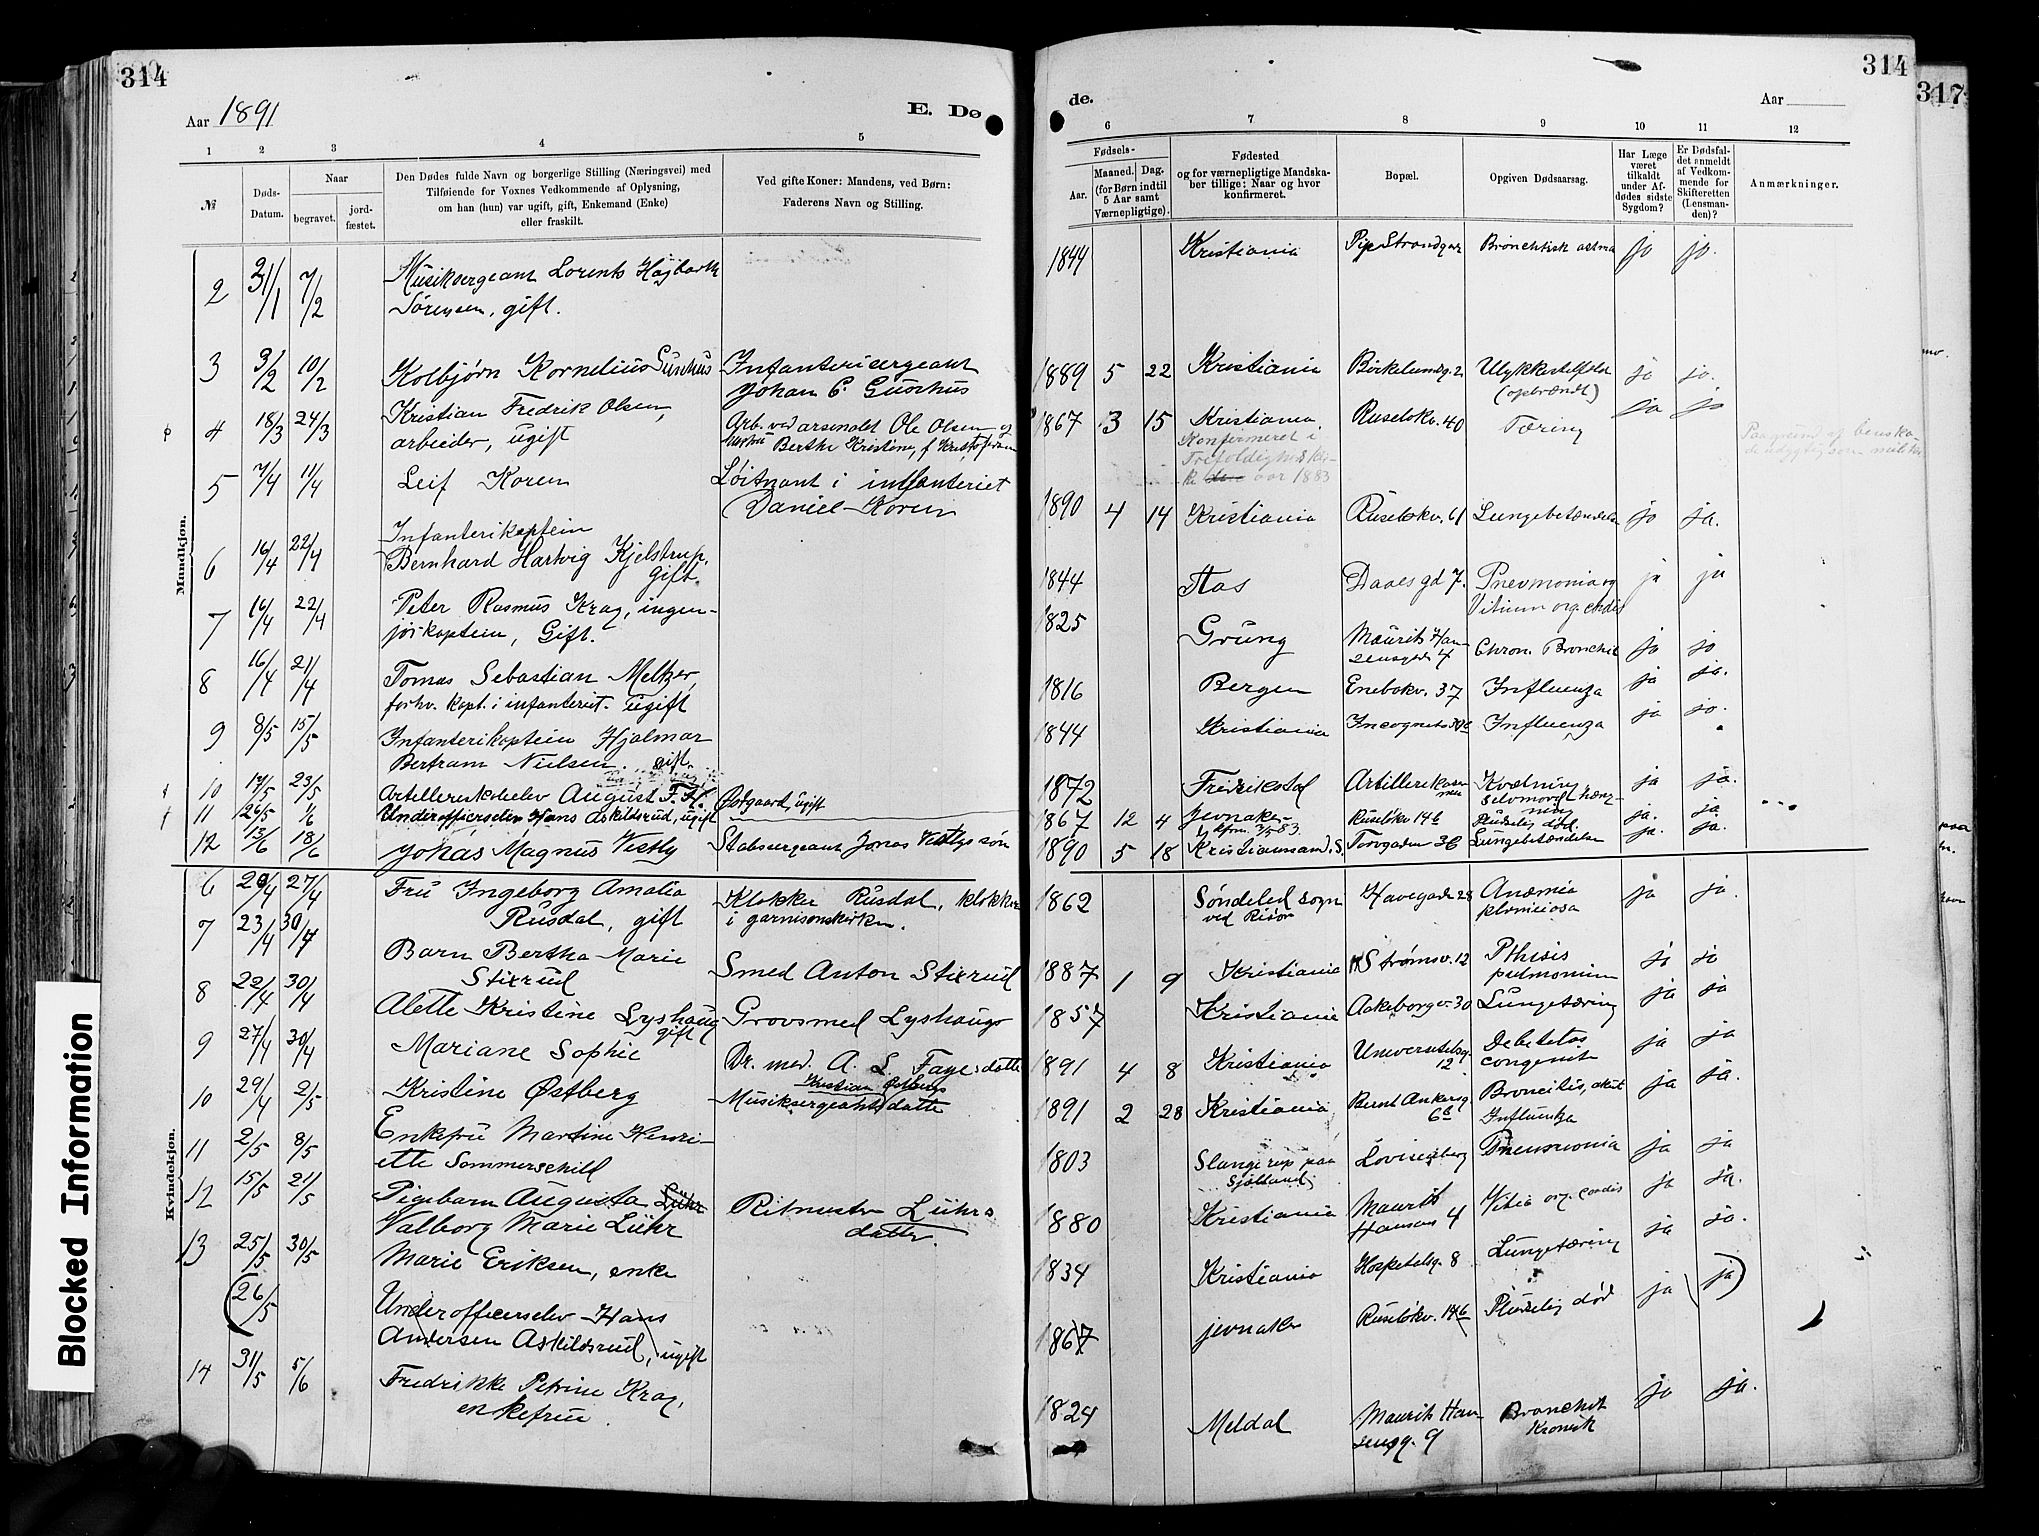 314
Aar 1891
E. Dø
1 2 3 4 5
№
Døds-Datum.
Naar
begravet.
jord-fæstet.
Den Dødes fulde Navn og borgerlige Stilling (Næringsvei) med
Tilføiende for Voxnes Vedkommende af Oplysning,
om han (hun) var ugift, gift, Enkemand (Enke)
eller fraskilt.
Ved gifte Koner: Mandens, ved Børn:
Faderens Navn og Stilling.
Mandkjøn.
2 31/1 7/2 Musiksergeant Lorents Højbarth
Sörensen, gift.
3 3/2 10/2 Kolbjørn Kornelius Guschus Infanterisergeant
Johan C. Guschus
4 18/3 24/3 Kristian Fredrik Olsen, Arb. ved arsenalet Ole Olsen og
arbieder, ugift hustru Berthe Kristine, f.
5 7/4 11/4 Leif Koren Löitnant i infanteriet
Daniel Koren
Infanterikaptein
6 16/4 22/4 Bernhard Hartvig Kjelstrup,
gift.
7 16/4 22/4 Peter Rasmus Krag, ingen-
jörkaptein, Gift.
8 16/4 21/4 Tomas Sebastian Meltzer,
forhv. kapt. i infanteriet. ugift
9 8/5 15/5 Infanterikaptein Hjalmar
Bertram Nielsen. gift.
10 17/5 23/5 Artilleriskoleelev August F. H. Ødgaard, ugift
11 26/5 1/6 Underofficerselev Hans Askildsrud, ugift
12 13/6 18/6 Johas Magnus Vestby Stabssergeant Jonas Vestbys søn
Kvindekjøn.
6 20/4 27/4 Fru Ingeborg Amalia Klokker Rusdal, klokker
Rusdal, gift i garnisonskirken.
7 23/4 30/4 Barn Bertha Marie
Stixrud Smed Anton Stixrud
8 22/4 30/4 Alette Kristine Lyshaug Grovsmed Lyshaugs
gift
9 27/4 30/4 Mariane Sophie Dr. med. A. L. Fayes datter
10 29/4 2/5 Kristine Østberg Musiksergeant Kristian Østbergs datte
11 2/5 8/5 Enkefru Martine Henri-
ette Sommerschild
12 15/5 21/5 Pigebarn Augusta Lühr Ritmester Lührs
Valborg Marie Lühr datter.
13 25/5 30/5 Marie Eriksen, enke
(26/5 Underofficerselev Hans
Andersen Askildsrud, ugift
14 31/5 5/6 Fredrikke Petrine Krag,
enkefrue.
de.
314
Aar
317
6 7 8 9 10 11 12
Fødsels-
Aar.
Maaned. Dag.
(for Børn indtil
5 Aar samt
Værnepligtige).
Fødested
og for værnepligtige Mandska-
ber tillige: Naar og hvor
konfirmeret.
Bopæl.
Opgiven Dødsaarsag.
Har Læge
været
tilkaldt
under Af-
dødes sidste
Sygdom?
Er Dødsfal-
det anmeldt
af Vedkom-
mende for
Skifteretten
(Lensman-
den)?
Anmærkninger.
1844 Kristiania Pip. Strandgar Bronchtisk astma ja ja.
1889 5 22 Kristiania Birkelundg. 2 Ulykkestilfelde ja ja.
(opbrændt)
1867 3 15 Kristiania. Ruselökv. 40 Tæring ja ja
Konfirmeret i
Trefoldigheds kir-
ke aar 1883
1890 4 14 Kristiania Ruselökv. 61 Lungebetændelse ja ja.
1844 Aas Daaes gd 7. Pnevmonia og ja ja
Vitium org. cordis
1825 Grung Maurits Han
sensgade 4 Chron. Bronchit ja ja
1816 Bergen Enebakv. 37 Influenza ja ja.
1844 Kristiania Incognito 30 b Influenza ja ja.
1872 Fredriksstad Artillerikaser
nen Kvælning ja ja.
selvmord hæng-
ning
1867 12 4 Jevnaker Ruselökv 14 b Pludselig död. ja. ja
kfm. 83.
1890 5 18 Kristiansand. S. Torvgaden 36 Lungebetændelse ja. ja.
1862 Søndeled sogn Havegade 28 Anæmia ja ja.
ved Risör
1887 1 9 Kristiania Strømsv. 12 Pthisis ja ja
pulmonum
1857 Kristiania Aakebergv. 30 Lungetæring ja ja
1891 4 8 Kristiania Universitetsg. Debelitas ja ja
12 congenit
1891 2 28 Kristiania Bernt Ankersg. Broncitis, akut ja ja.
6 b Influenza
1803 Slangerup paa Lovisenberg Pneumonia ja ja
Sjælland
1880 Kristiania Maurits Vitia org. cordis ja ja.
Hansens 4
1834 Kristiania Hospitalsg. 8 Lungetæring ja ja.
1867 Jevnaker Ruselökv. 14 b Pludselig död ja (ja)
1824 Meldal Maurits Han- Bronchit ja ja.
sensg. 9 Kronisk
Blocked Information